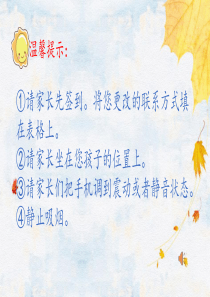 温馨提示:
①请家长先签到。将您更改的联系方式填
在表格上。
②请家长坐在您孩子的位置上。
③请家长们把手机调到震动或者静音状态。
④静止吸烟。